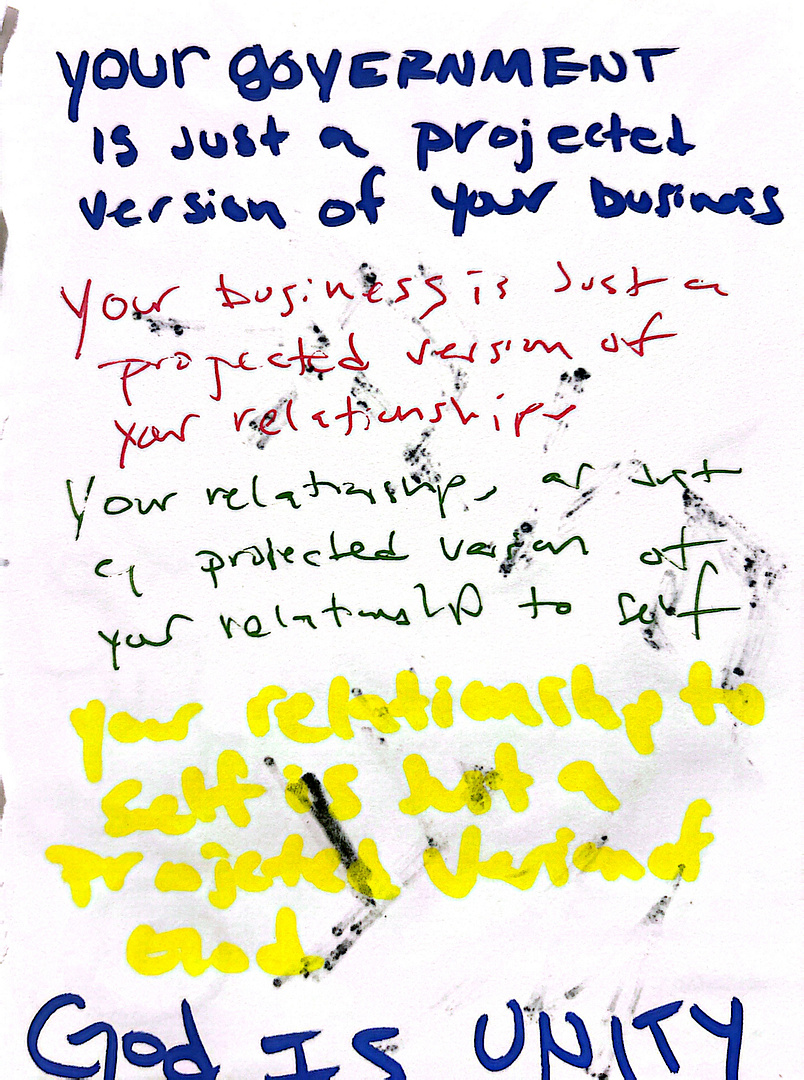 your GOVERNMENT
is just a projected
version of your business
Your business is just a
projected version of
your relationships
Your relationships are just
a projected version of
your relationship to self
your relationship to
self is just a
projected version of
God
God IS UNITY